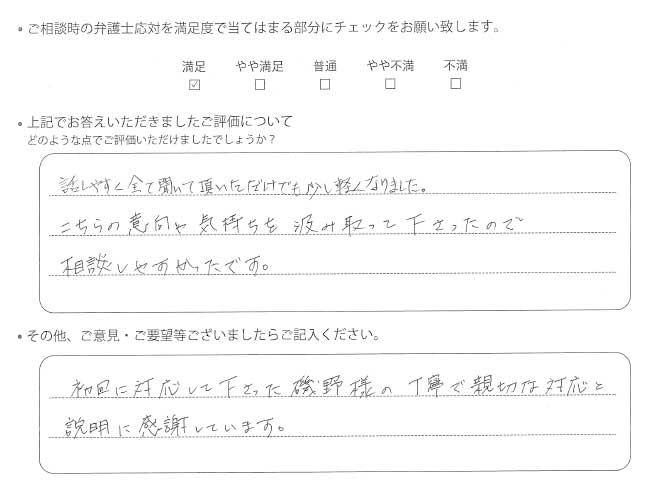 ・ご相談時の弁護士応対を満足度で当てはまる部分にチェックをお願い致します。
満足 やや満足 普通 やや不満 不満
☑ ☐ ☐ ☐ ☐
・上記でお答えいただきましたご評価について
どのような点でご評価いただけましたでしょうか?
話しやすく全て聞いて頂いただけでも少し軽くなりました。
こちらの意向や気持ちを汲み取って下さったので
相談しやすかったです。
・その他、ご意見・ご要望等ございましたらご記入ください。
初回に対応して下さった磯野様の丁寧で親切な対応と
説明に感謝しています。